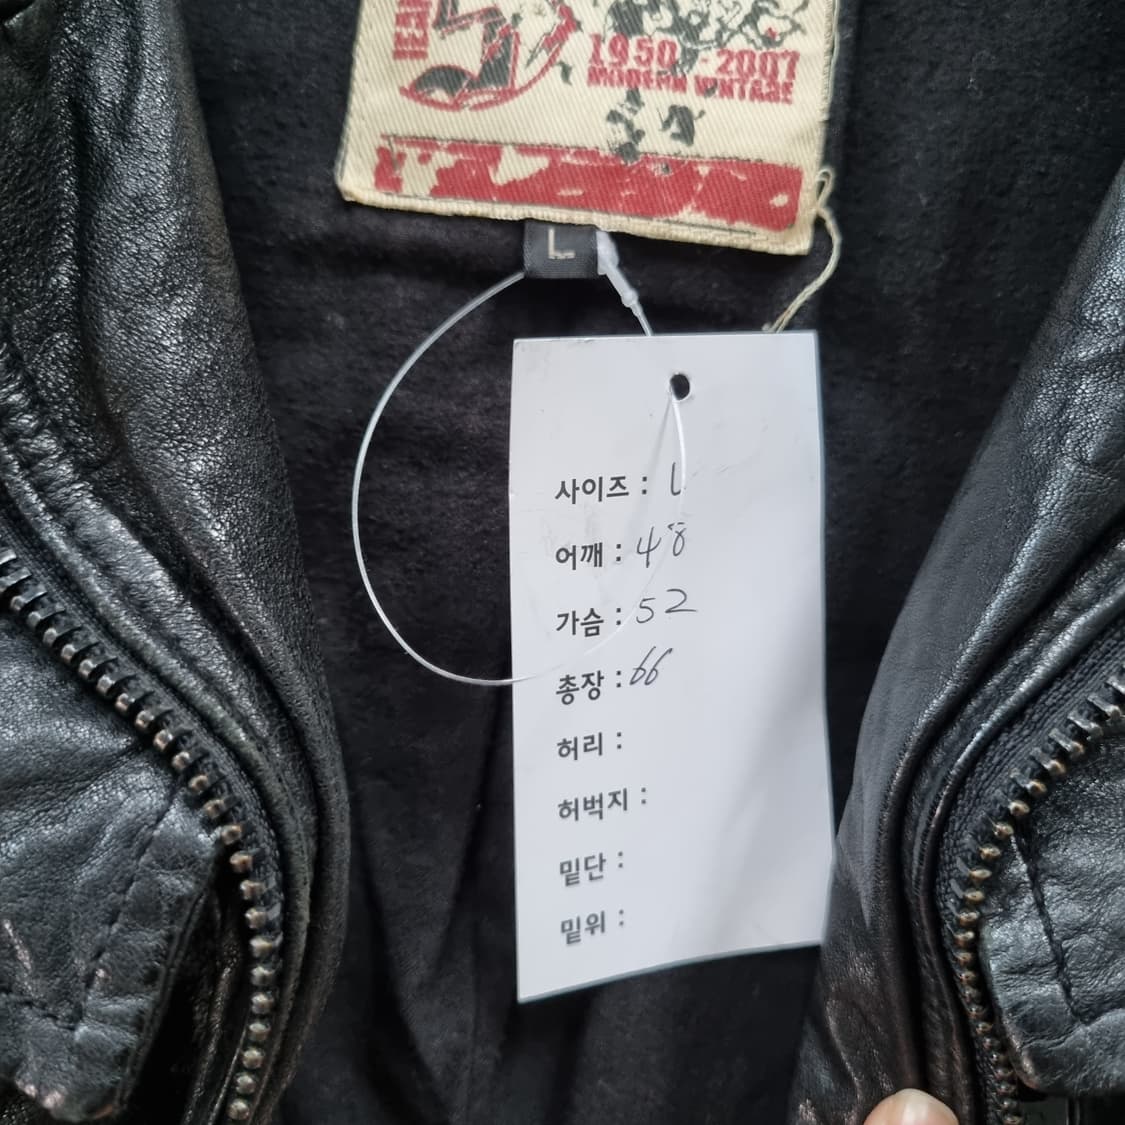 1950 - 2007
MODERN VINTAGE
L
사이즈 : L
어깨 : 48
가슴 : 52
총장 : 66
허리 :
허벅지 :
밑단 :
밑위 :